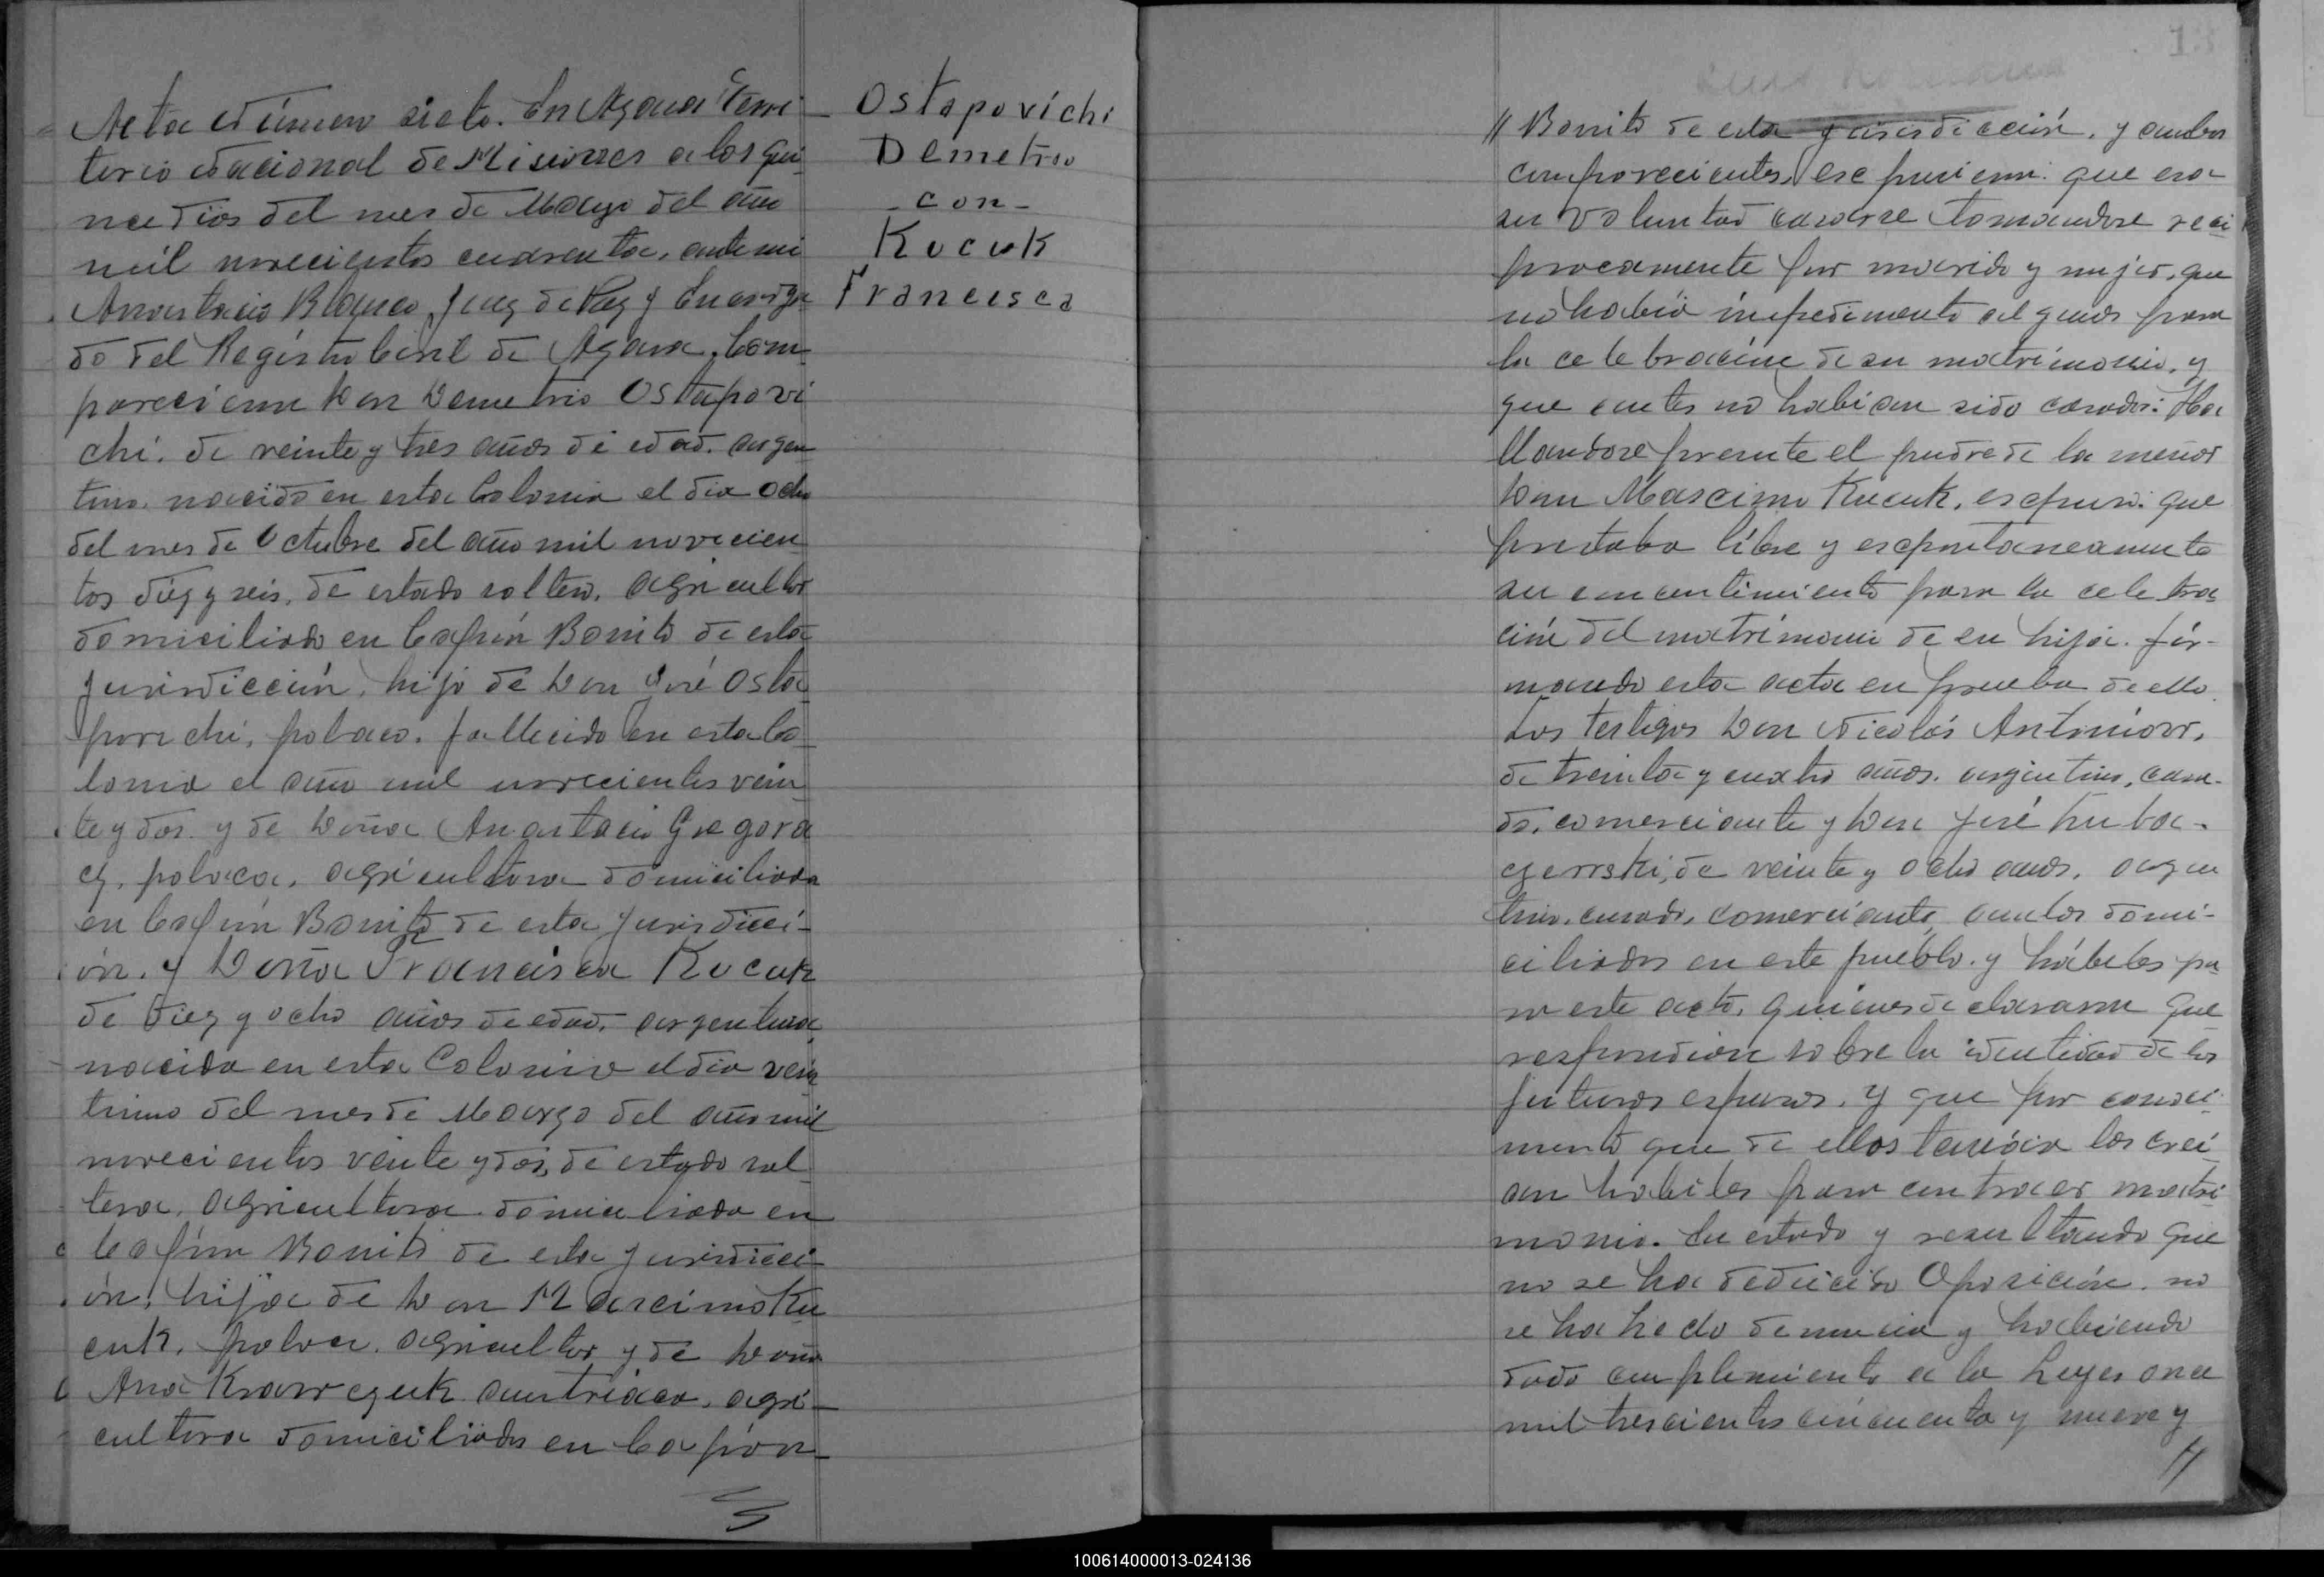 Acta Número siete. En Azara Terri-
torio Nacional de Misiones a los quin-
ce días del mes de Mayo del año
mil novecientos cuarenta, ante mi
Anastacio Blanco, Juez de Paz y Encarga-
do del Registro Civil de Azara, Com-
parecieron Don Demetrio Ostapovi
chi. de veinte y tres años de edad. argen
tino. nacido en esta Colonia el dia ocho
del mes de Octubre del año mil novecien
tos diez y seis, de estado soltero, agricultor
domiciliado en Capón Bonito de esta
jurisdicción, hijo de Don José Osta
povichi, polaco. fallecido en esta Co-
lonia el año mil novecientos vein
te y dos. y de Doña Anastacia Gregora
cz, polaca, agricultora domiciliada
en Capón Bonito de esta jurisdicci-
ón. y Doña Francisca Kucuk
de diez y ocho años de edad, argentina,
nacida en esta Colonia el dia vein
tiuno del mes de Marzo del año mil
novecientos veinte y dos, de estado sol
tera, agricultora domiciliada en
Capón Bonito de esta jurisdicci-
ón, hija de Don Marcimo Ku
cuk, polaco. agricultor y de Doña
Ana Krawczuk austriaca, agri-
cultora domiciliados en Capón
Ostapovichi
Demetrio
- con -
Kucuk
Francisca
13
// Bonito de esta jurisdicción, y ambos
comparecientes, expusieron: que era
su voluntad casarse tomandose reci
procamente por marido y mujer, que
no había impedimento alguno para
la celebración de su matrimonio, y
que antes no habian sido casados: Ha
llandose presente el padre de la menor
Don Marcimo Kucuk, expuso: que
prestaba libre y espontaneamente
su consentimiento para la celebra
ción del matrimonio de su hija. fir-
mando esta acta en prueba de ello.
Los testigos Don Nicolás Antoniow,
de treinta y cuatro años. argentino, casa-
do, comerciante y Don José
de veinte y ocho años, argen
tino, casado, comerciante, ambos domi-
ciliados en este pueblo. y hábiles pa
ra este acto, quienes declararon que
respondian sobre la identidad de los
futuros esposos. y que por conoci-
miento que de ellos tenian los crei
an habiles para contraer matri
monio. En estado y resultando que
no se ha deducido Oposición, no
se ha hecho denuncia y habiendo
dado cumplimiento a la Leyes once
mil trescientos cincuenta y nueve y
//
100614000013-024136